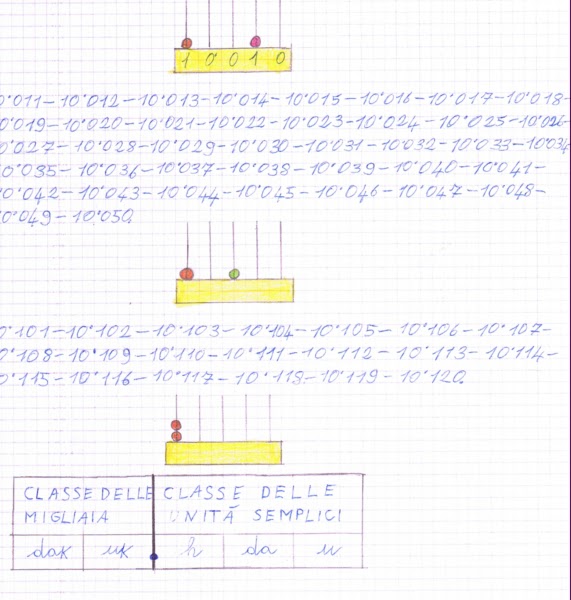 1 0 0 1 0
0'011-10'012-10'013-10'014-10'015-10'016-10'017-10'018-
0'019-10'020-10'021-10'022-10'023-10'024-10'025-10'026-
0'027-10'028-10'029-10'030-10'031-10'032-10'033-10'034
0'035-10'036-10'037-10'038-10'039-10'040-10'041-
0'042-10'043-10'044-10'045-10'046-10'047-10'048-
0'049-10'050.
0'101-10'102-10'103-10'104-10'105-10'106-10'107-
0'108-10'109-10'110-10'111-10'112-10'113-10'114-
0'115-10'116-10'117-10'118-10'119-10'120.
CLASSE DELLE CLASSE DELLE
MIGLIAIA UNITÀ SEMPLICI
dak uk h da u